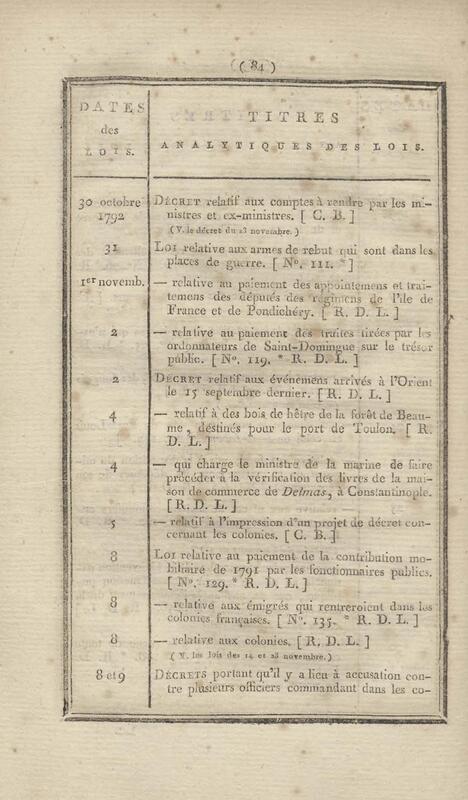 ( 84 )
DATES
des
LOIS.
TITRES
ANALYTIQUES DES LOIS.
30 octobre
1792
DÉCRET relatif aux comptes à rendre par les mi-
nistres et ex-ministres. [ C. B. ]
( V. le décret du 23 novembre. )
31
LOI relative aux armes de rebut qui sont dans les
places de guerre. [ N°. 111. * ]
1er novemb.
— relative au paiement des appointemens et trai-
temens des députés des régimens de l'île de
France et de Pondichéry. [ R. D. L. ]
2
— relative au paiement des traites tirées par les
ordonnateurs de Saint-Domingue sur le trésor
public. [ N°. 119. * R. D. L. ]
2
DÉCRET relatif aux événemens arrivés à l'Orient
le 15 septembre dernier. [ R. D. L. ]
4
— relatif à des bois de hêtre de la forêt de Beau-
me, destinés pour le port de Toulon. [ R.
D. L. ]
4
— qui charge le ministre de la marine de faire
procéder à la vérification des livres de la mai-
son de commerce de Delmas, à Constantinople.
[ R. D. L. ]
5
— relatif à l'impression d'un projet de décret con-
cernant les colonies. [ C. B. ]
8
LOI relative au paiement de la contribution mo-
biliaire de 1791 par les fonctionnaires publics.
[ N°. 129. * R. D. L. ]
8
— relative aux émigrés qui rentreroient dans les
colonies françaises. [ N°. 135. * R. D. L. ]
8
— relative aux colonies. [ R. D. L. ]
( V. les lois des 14 et 28 novembre. )
8 et 9
DÉCRETS portant qu'il y a lieu à accusation con-
tre plusieurs officiers commandant dans les co-